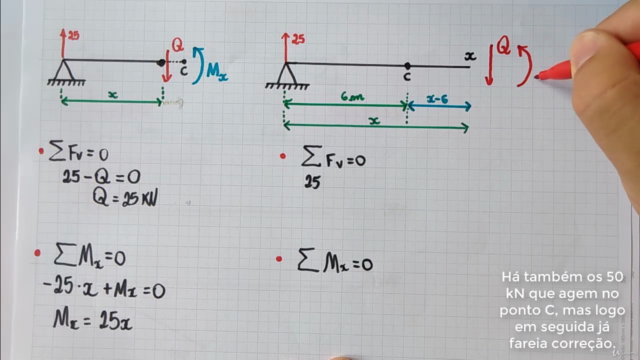 25
Q
C
Mx
x
25
x
Q
C
6m
x-6
x
• ΣFv=0
25-Q=0
Q=25KN
• ΣFv=0
25
• ΣMx=0
-25·x+Mx=0
Mx=25x
• ΣMx=0
Há também os 50
kN que agem no
ponto C, mas logo
em seguida já
faria correção.